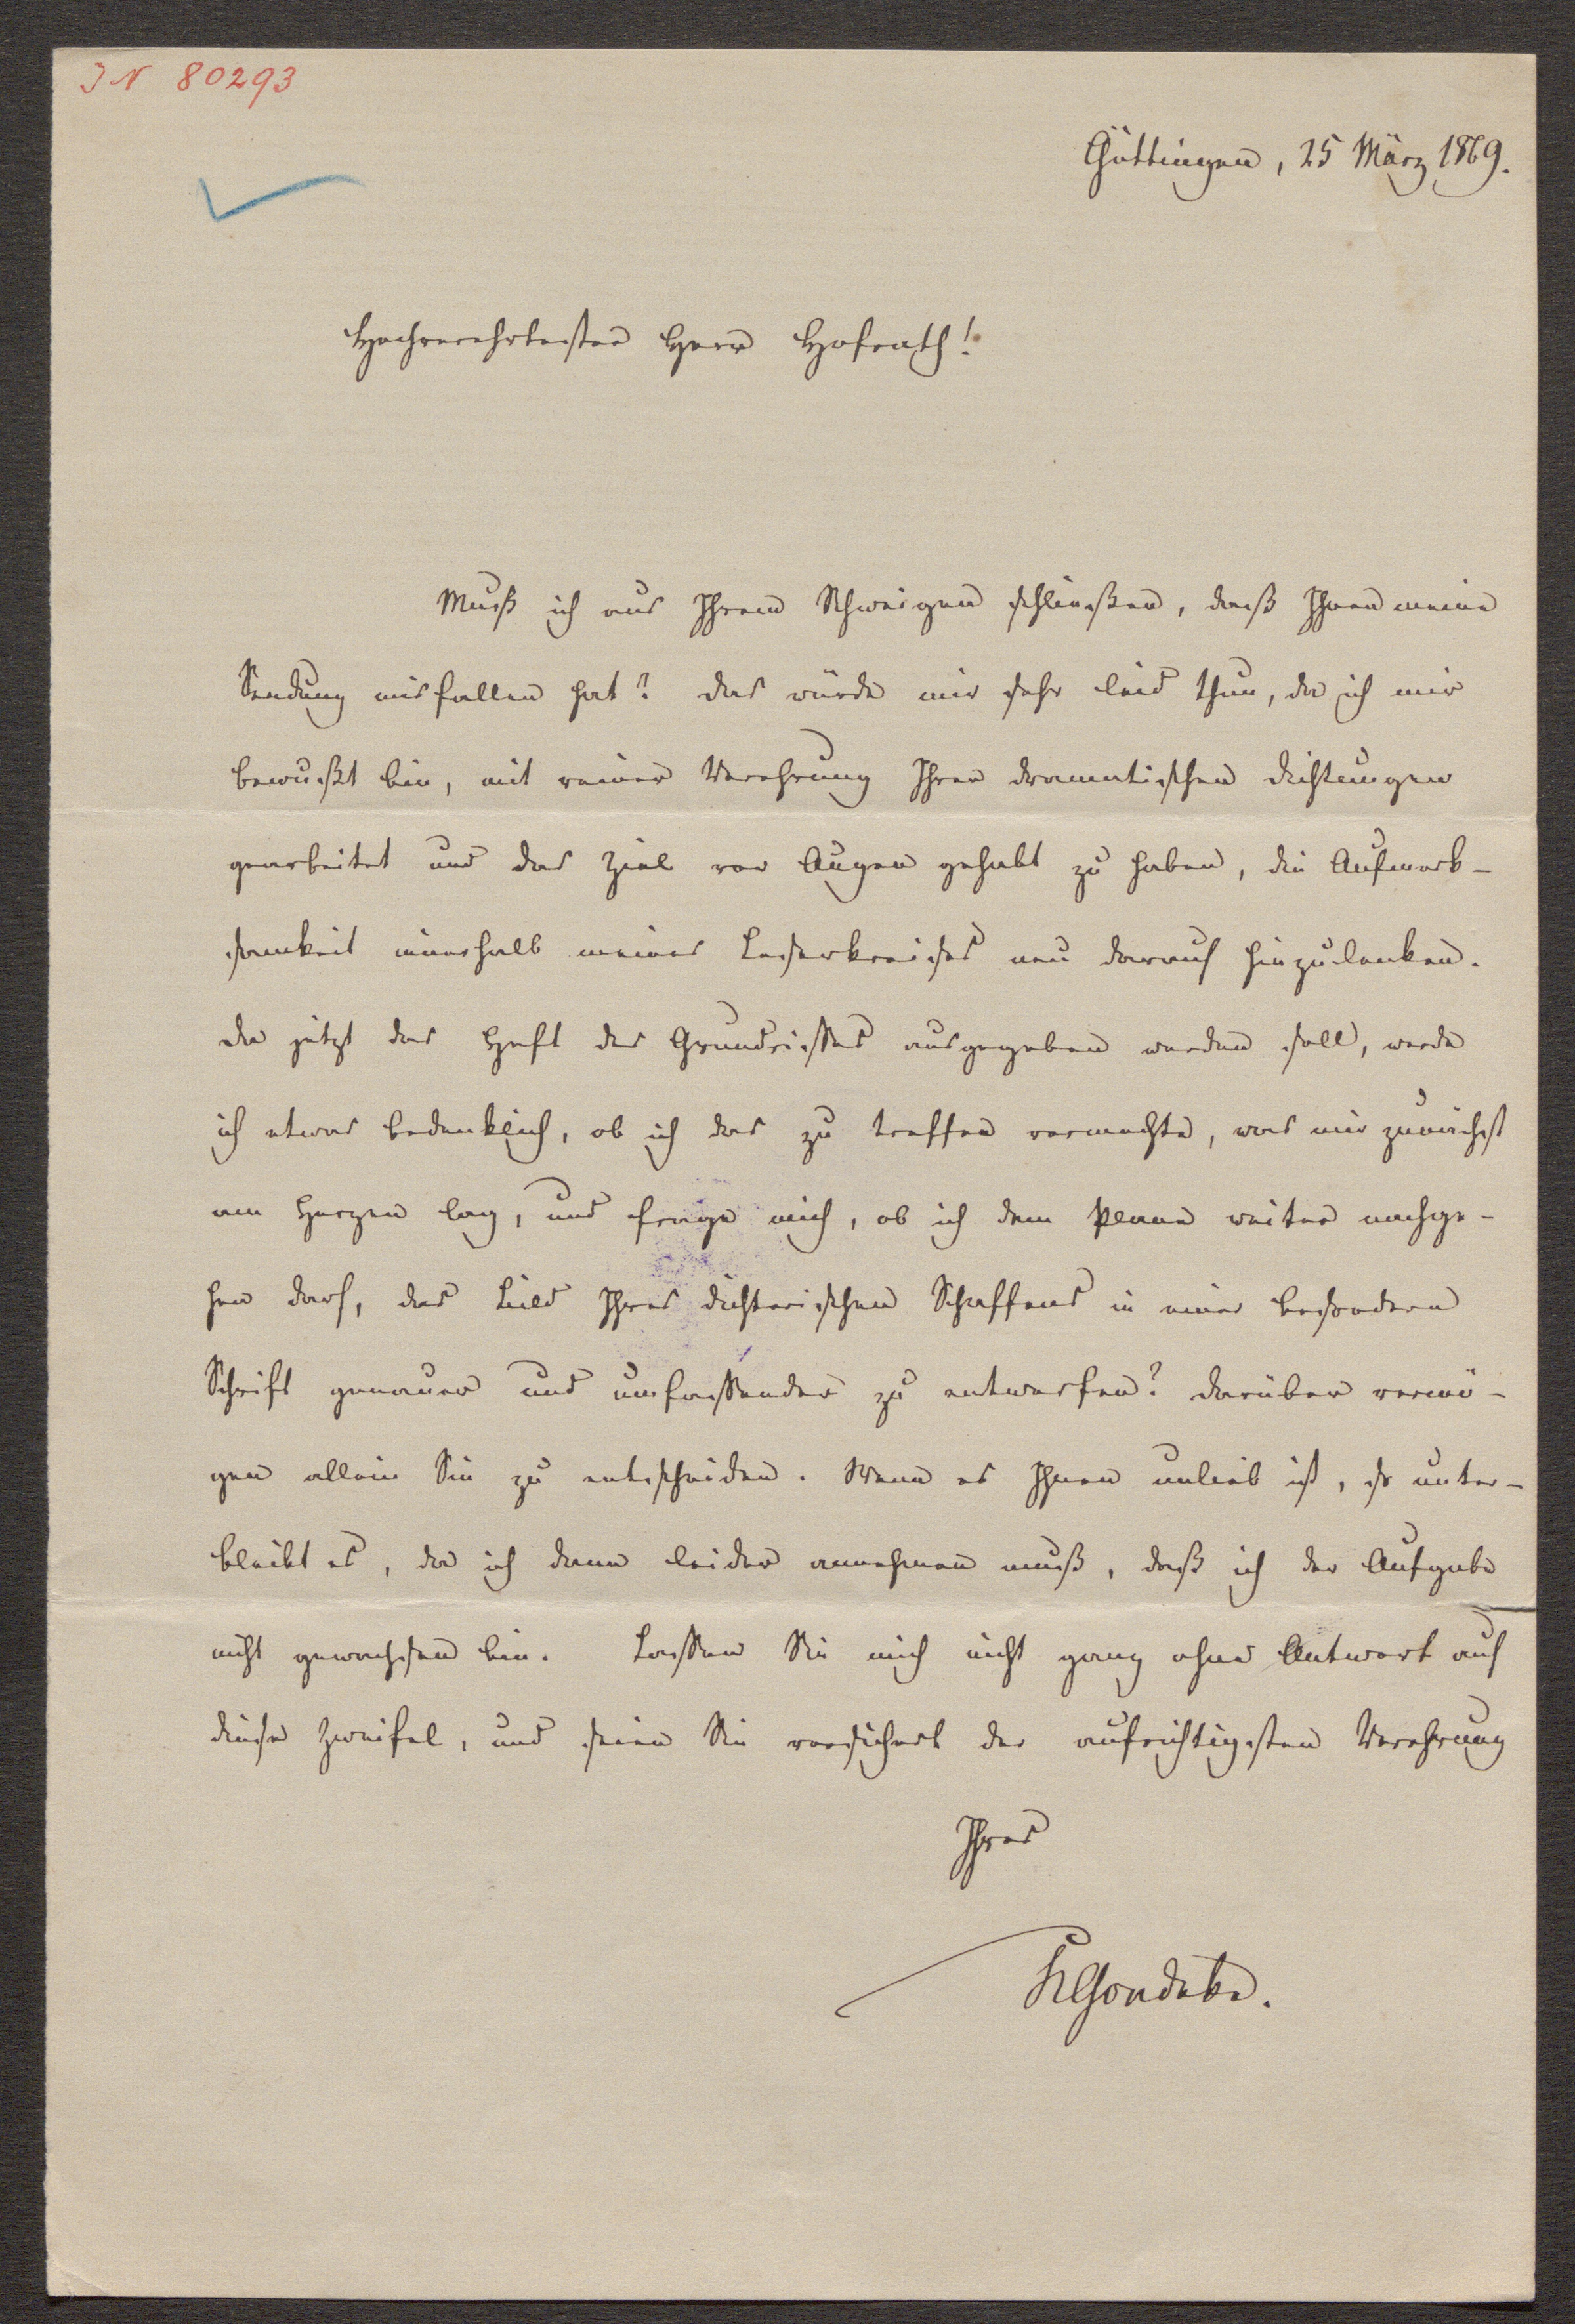 IN 80293
Göttingen, 25 März 1869.
Hochverehrtester Herr Hofrath!
Muß ich aus Ihrem Schweigen schließen, daß Ihnen meine
Sendung misfallen hat? Das würde mir sehr leid thun, da ich mir
bewußt bin, mit reiner Verehrung Ihrer dramatischen Dichtungen
gearbeitet und das Ziel vor Augen gehabt zu haben, die Aufmerk-
samkeit innerhalb meines Leserkreises neu darauf hinzulenken.
Da jetzt das Heft des Grundrisses ausgegeben werden soll, werde
ich etwas bedenklich, ob ich das zu treffen vermochte, was mir zunächst
am Herzen lag, und frage mich, ob ich dem Plane weiter nachge-
hen darf, das Bild Ihres dichterischen Schaffens in einer besondern
Schrift genauer und umfassender zu entwerfen? Darüber vermö-
gen allein Sie zu entscheiden. Wenn es Ihnen unlieb ist, so unter-
bleibt es, da ich dann leider annehmen muß, daß ich der Aufgabe
nicht gewachsen bin. Lassen Sie mich nicht ganz ohne Antwort auf
diese Zweifel, und seien Sie versichert der aufrichtigsten Verehrung
Ihres
KGoedeke.